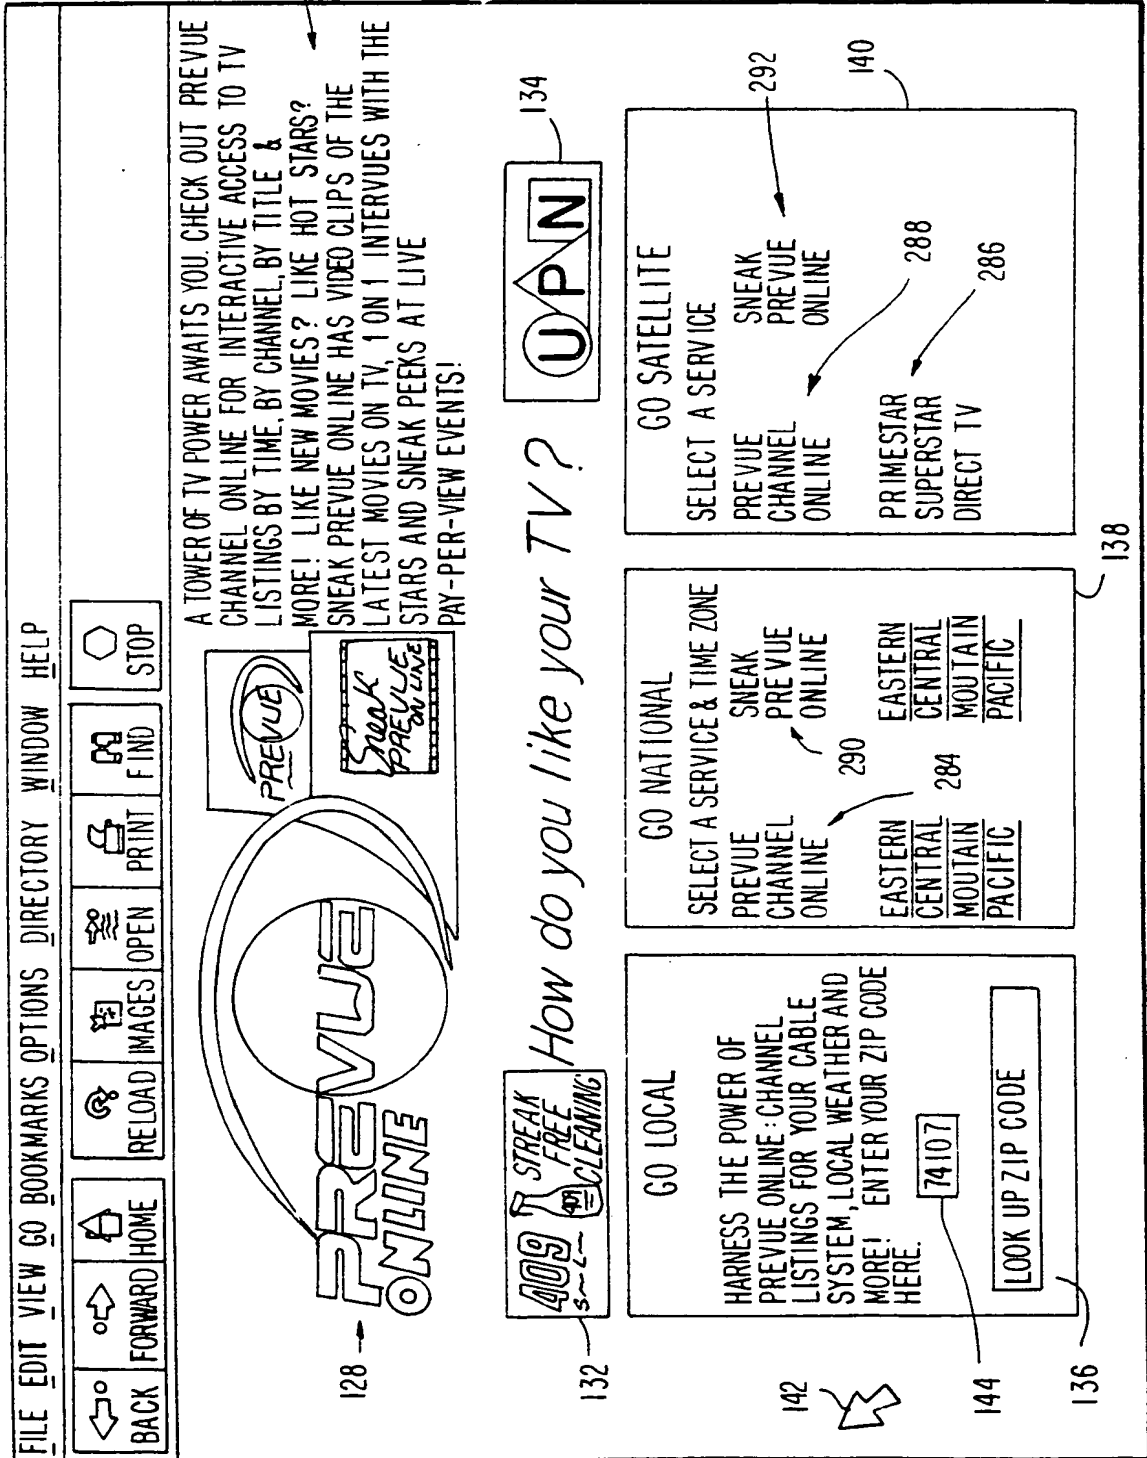 FILE EDIT VIEW GO BOOKMARKS OPTIONS DIRECTORY WINDOW HELP
BACK FORWARD HOME RELOAD IMAGES OPEN PRINT FIND STOP
128
PREVUE
ONLINE
PREVUE
Sneak
PREVUE
ON LINE
A TOWER OF TV POWER AWAITS YOU. CHECK OUT PREVUE
CHANNEL ONLINE FOR INTERACTIVE ACCESS TO TV
LISTINGS BY TIME, BY CHANNEL, BY TITLE &
MORE! LIKE NEW MOVIES? LIKE HOT STARS?
SNEAK PREVUE ONLINE HAS VIDEO CLIPS OF THE
LATEST MOVIES ON TV, 1 ON 1 INTERVUES WITH THE
STARS AND SNEAK PEEKS AT LIVE
PAY-PER-VIEW EVENTS!
132
409
STREAK
FREE
CLEANING
409
How do you like your TV?
UPN
134
142
144
136
GO LOCAL
HARNESS THE POWER OF
PREVUE ONLINE: CHANNEL
LISTINGS FOR YOUR CABLE
SYSTEM, LOCAL WEATHER AND
MORE! ENTER YOUR ZIP CODE
HERE.
74107
LOOK UP ZIP CODE
GO NATIONAL
SELECT A SERVICE & TIME ZONE
PREVUE
CHANNEL
ONLINE
284
EASTERN
CENTRAL
MOUTAIN
PACIFIC
SNEAK
PREVUE
ONLINE
290
EASTERN
CENTRAL
MOUTAIN
PACIFIC
138
GO SATELLITE
SELECT A SERVICE
PREVUE
CHANNEL
ONLINE
288
SNEAK
PREVUE
ONLINE
292
PRIMESTAR
SUPERSTAR
DIRECT TV
286
140